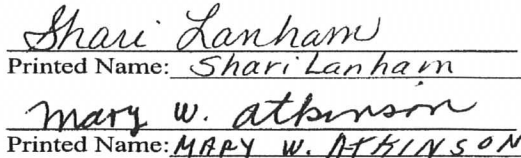 Shari Lanham
Printed Name: Shari Lanham
Mary W. Atkinson
Printed Name: MARY W. ATKINSON